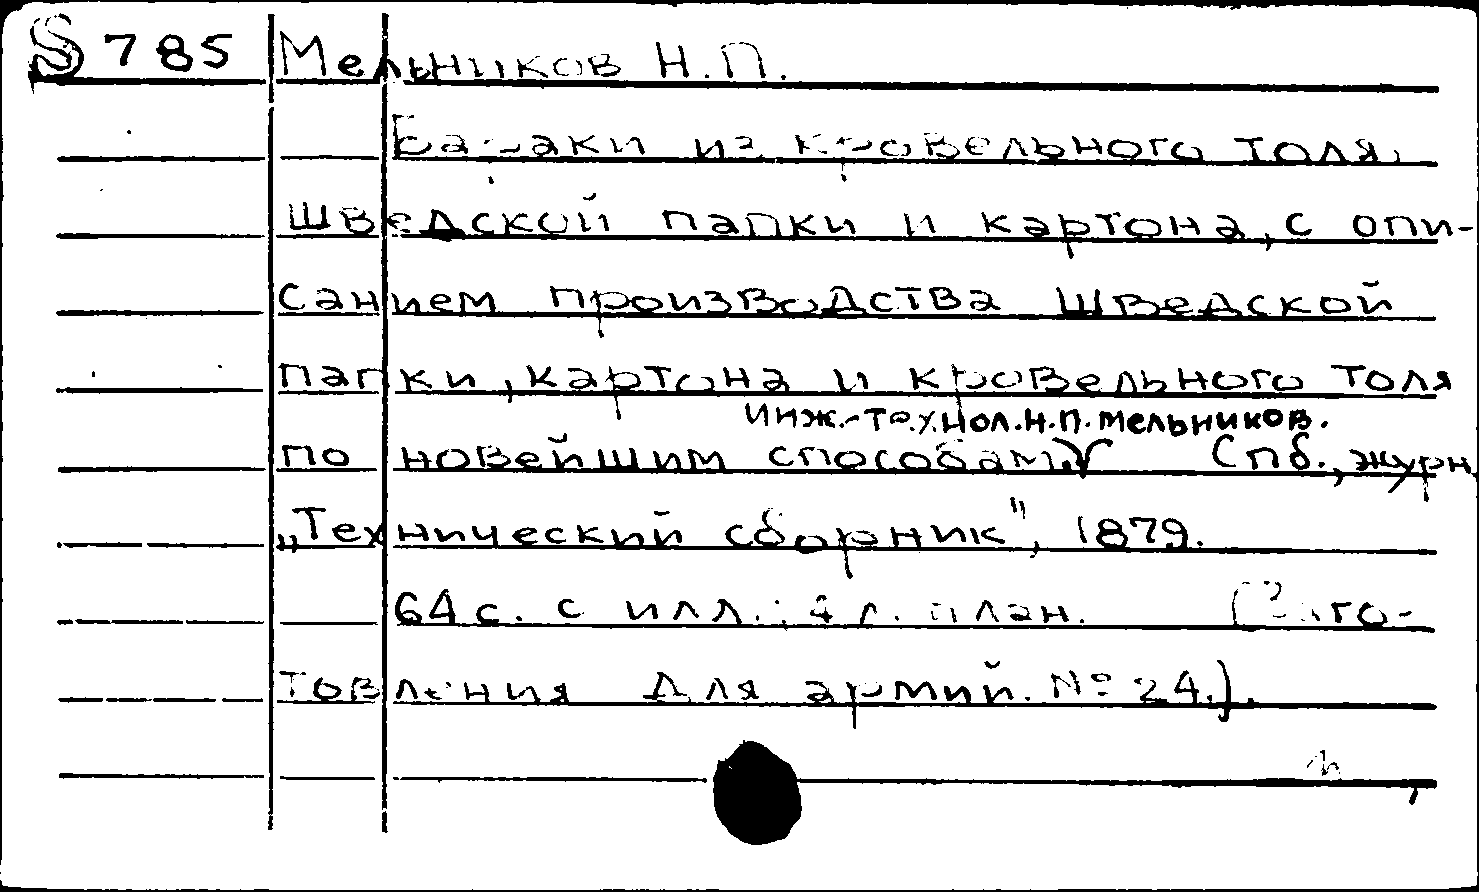 § 785 Мельников Н.П.
Бараки из кровельного толя,
шведской папки и картона, с опи-
санием производства шведской
папки, картона и кровельного толя
инж.-технол. Н.П. Мельников.
по новейшим способам. Спб., журн.
„Технический сборник", 1879.
64 с. с илл.; 4 л. план. (Заго-
товления для армий. № 24.).